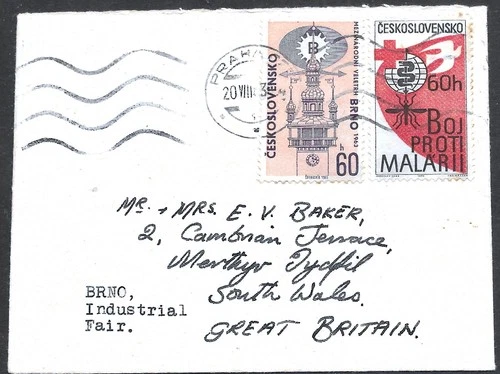 PRAHA
20 VIII 63
ČESKOSLOVENSKO
MEZINÁRODNÍ VELETRH BRNO 1963
60 h
ČESKOSLOVENSKO
60h
BOJ
PROTI
MALÁRII
MR. + MRS. E. V. BAKER,
2, Cambrian Terrace,
Merthyr Tydfil
South Wales.
GREAT BRITAIN.
BRNO,
Industrial
Fair.